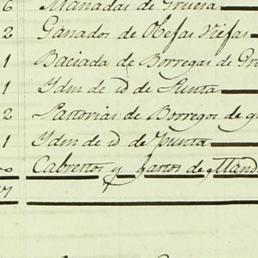 6 Manadas de Grueia
2 Ganados de Obejas Viejas
1 Baciada de Borregas de
1 Ydm de id de Punta
2 Pastorias de Borregos de
1 Ydm de id de Punta
Cabretos y gastos de